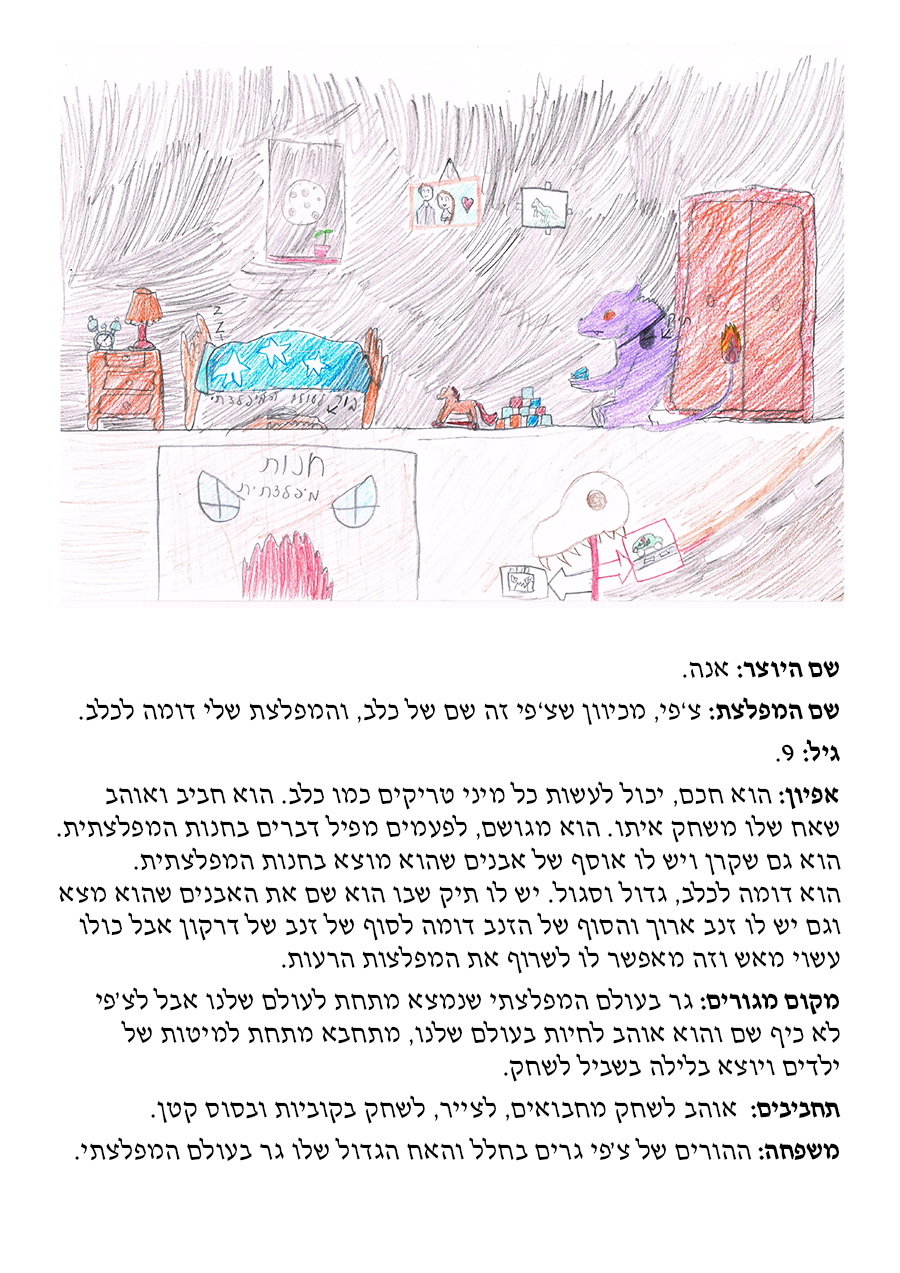 z
z
z
תיק
בור לעולם המיפלצתי
חנות
מיפלצתית
חנות
שם היוצר: אנה.
שם המפלצת: צ'פי, מכיוון שצ'פי זה שם של כלב, והמפלצת שלי דומה לכלב.
גיל: 9.
אפיון: הוא חכם, יכול לעשות כל מיני טריקים כמו כלב. הוא חביב ואוהב
שאח שלו משחק איתו. הוא מגושם, לפעמים מפיל דברים בחנות המפלצתית.
הוא גם שקרן ויש לו אוסף של אבנים שהוא מוצא בחנות המפלצתית.
הוא דומה לכלב, גדול וסגול. יש לו תיק שבו הוא שם את האבנים שהוא מצא
וגם יש לו זנב ארוך והסוף של הזנב דומה לסוף של זנב של דרקון אבל כולו
עשוי מאש וזה מאפשר לו לשרוף את המפלצות הרעות.
מקום מגורים: גר בעולם המפלצתי שנמצא מתחת לעולם שלנו אבל לצ'פי
לא כיף שם והוא אוהב לחיות בעולם שלנו, מתחבא מתחת למיטות של
ילדים ויוצא בלילה בשביל לשחק.
תחביבים: אוהב לשחק מחבואים, לצייר, לשחק בקוביות ובסוס קטן.
משפחה: ההורים של צ'פי גרים בחלל והאח הגדול שלו גר בעולם המפלצתי.